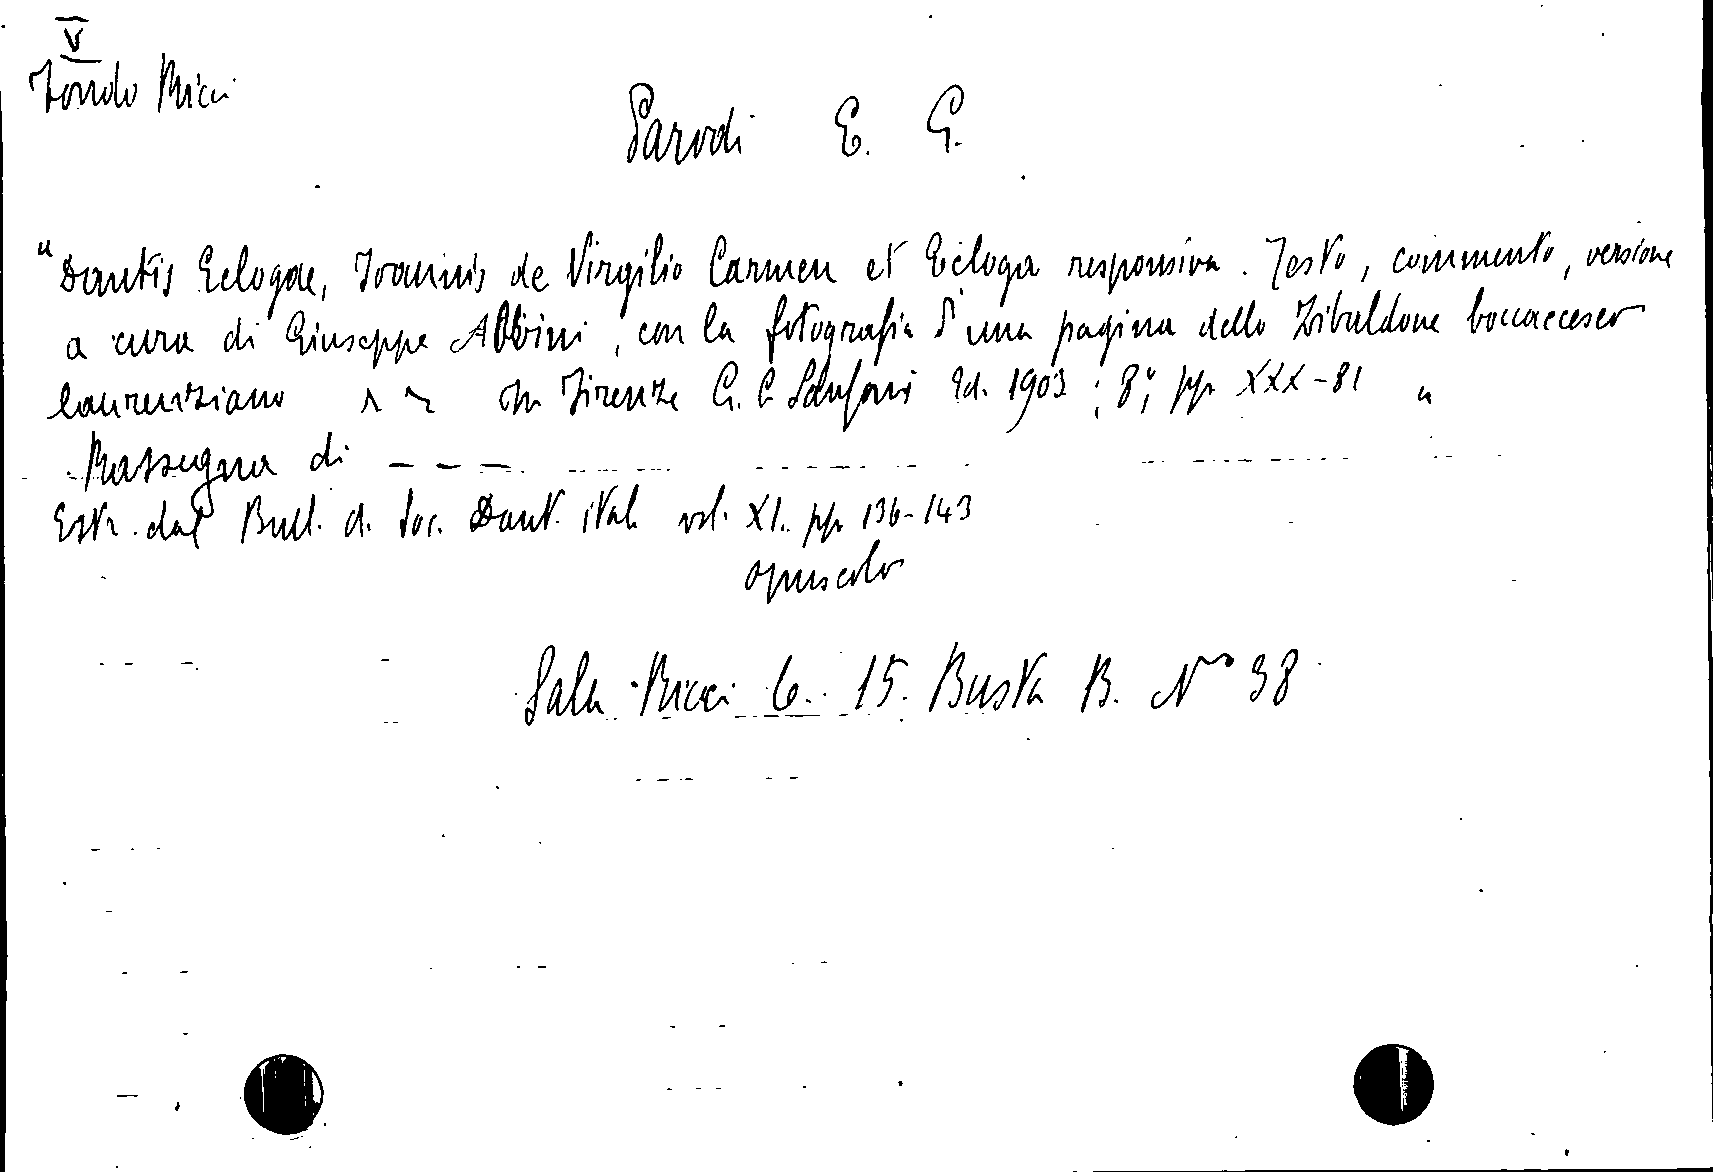 V
Fondo Ricci
Parodi E. G.
"Dantis Eclogae, Joannis de Virgilio Carmen et Ecloga responsiva. Testo, commento, versione
a cura di Giuseppe Albini, con la fotografia d'una pagina dello Zibaldone boccaccesco
laurenziano In Firenze G. C. Sansoni Ed. 1903; 8°; pp. XXX-81 "
Rassegna di - - -
Estr. dal Bull. d. Soc. Dant. ital. vol. XI. pp. 136-143
opuscolo
Sala Ricci 6. 15. Busta B. N° 38